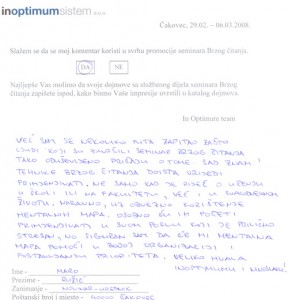 inoptimumsistem d.o.o.
Čakovec, 29.02. – 06.03.2008.
Slažem se da se moj komentar koristi u svrhu promocije seminara Brzog čitanja.
DA NE
Najljepše Vas molimo da svoje dojmove sa službenog dijela seminara Brzog
čitanja zapišete ispod, kako bismo Vaše impresije uvrstili u katalog dojmova.
In Optimum team
VEĆ SAM SE NEKOLIKO PUTA ZAPITAO ZAŠTO
LJUDI KOJI SU ZAVRŠILI SEMINAR BRZOG ČITANJA
TAKO ODUŠEVLJENO PRIČAJU O TOME. SAD ZNAM!
TEHNIKE BRZOG ČITANJA DOISTA VRIJEDI
PRIMJENJIVATI, NE SAMO KAD JE RIJEČ O UČENJU
U ŠKOLI ILI NA FAKULTETU, VEĆ I U SVAKODNEVNOM
ŽIVOTU. NARAVNO, UZ OBVEZNO KORIŠTENJE
MENTALNIH MAPA. OSOBNO ĆU IH POČETI
PRIMJENJIVATI U SVOM POSLU KOJI JE PRILIČNO
STRESAN, NO SIGURAN SAM DA ĆE MI MENTALNA
MAPA POMOĆI U BOLJOJ ORGANIZACIJI I
POSTAVLJANJU PRIORITETA. VELIKO HVALA
INOPTIMUMU I
Ime – MARO
Prezime –
Zanimanje – NOVINAR-UREDNIK
Poštanski broj i mjesto – ČAKOVEC